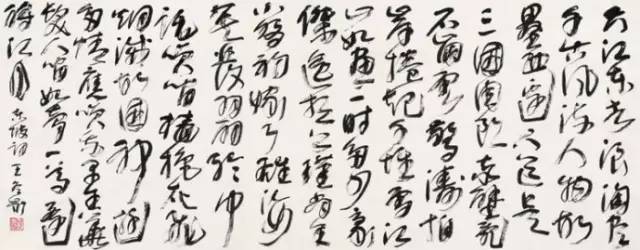 大江东去浪淘尽
千古风流人物故
垒西边人道是
三國周郎赤壁乱
石崩雲驚涛拍
岸捲起千堆雪江
山如畫一时多少豪
傑遥想公瑾当年
小喬初嫁了雄姿
英發羽扇纶巾
谈笑间樯橹灰飞
烟滅故國神遊
多情應笑我早生華
发人间如夢一尊還
酹江月 东坡词 王冬齡